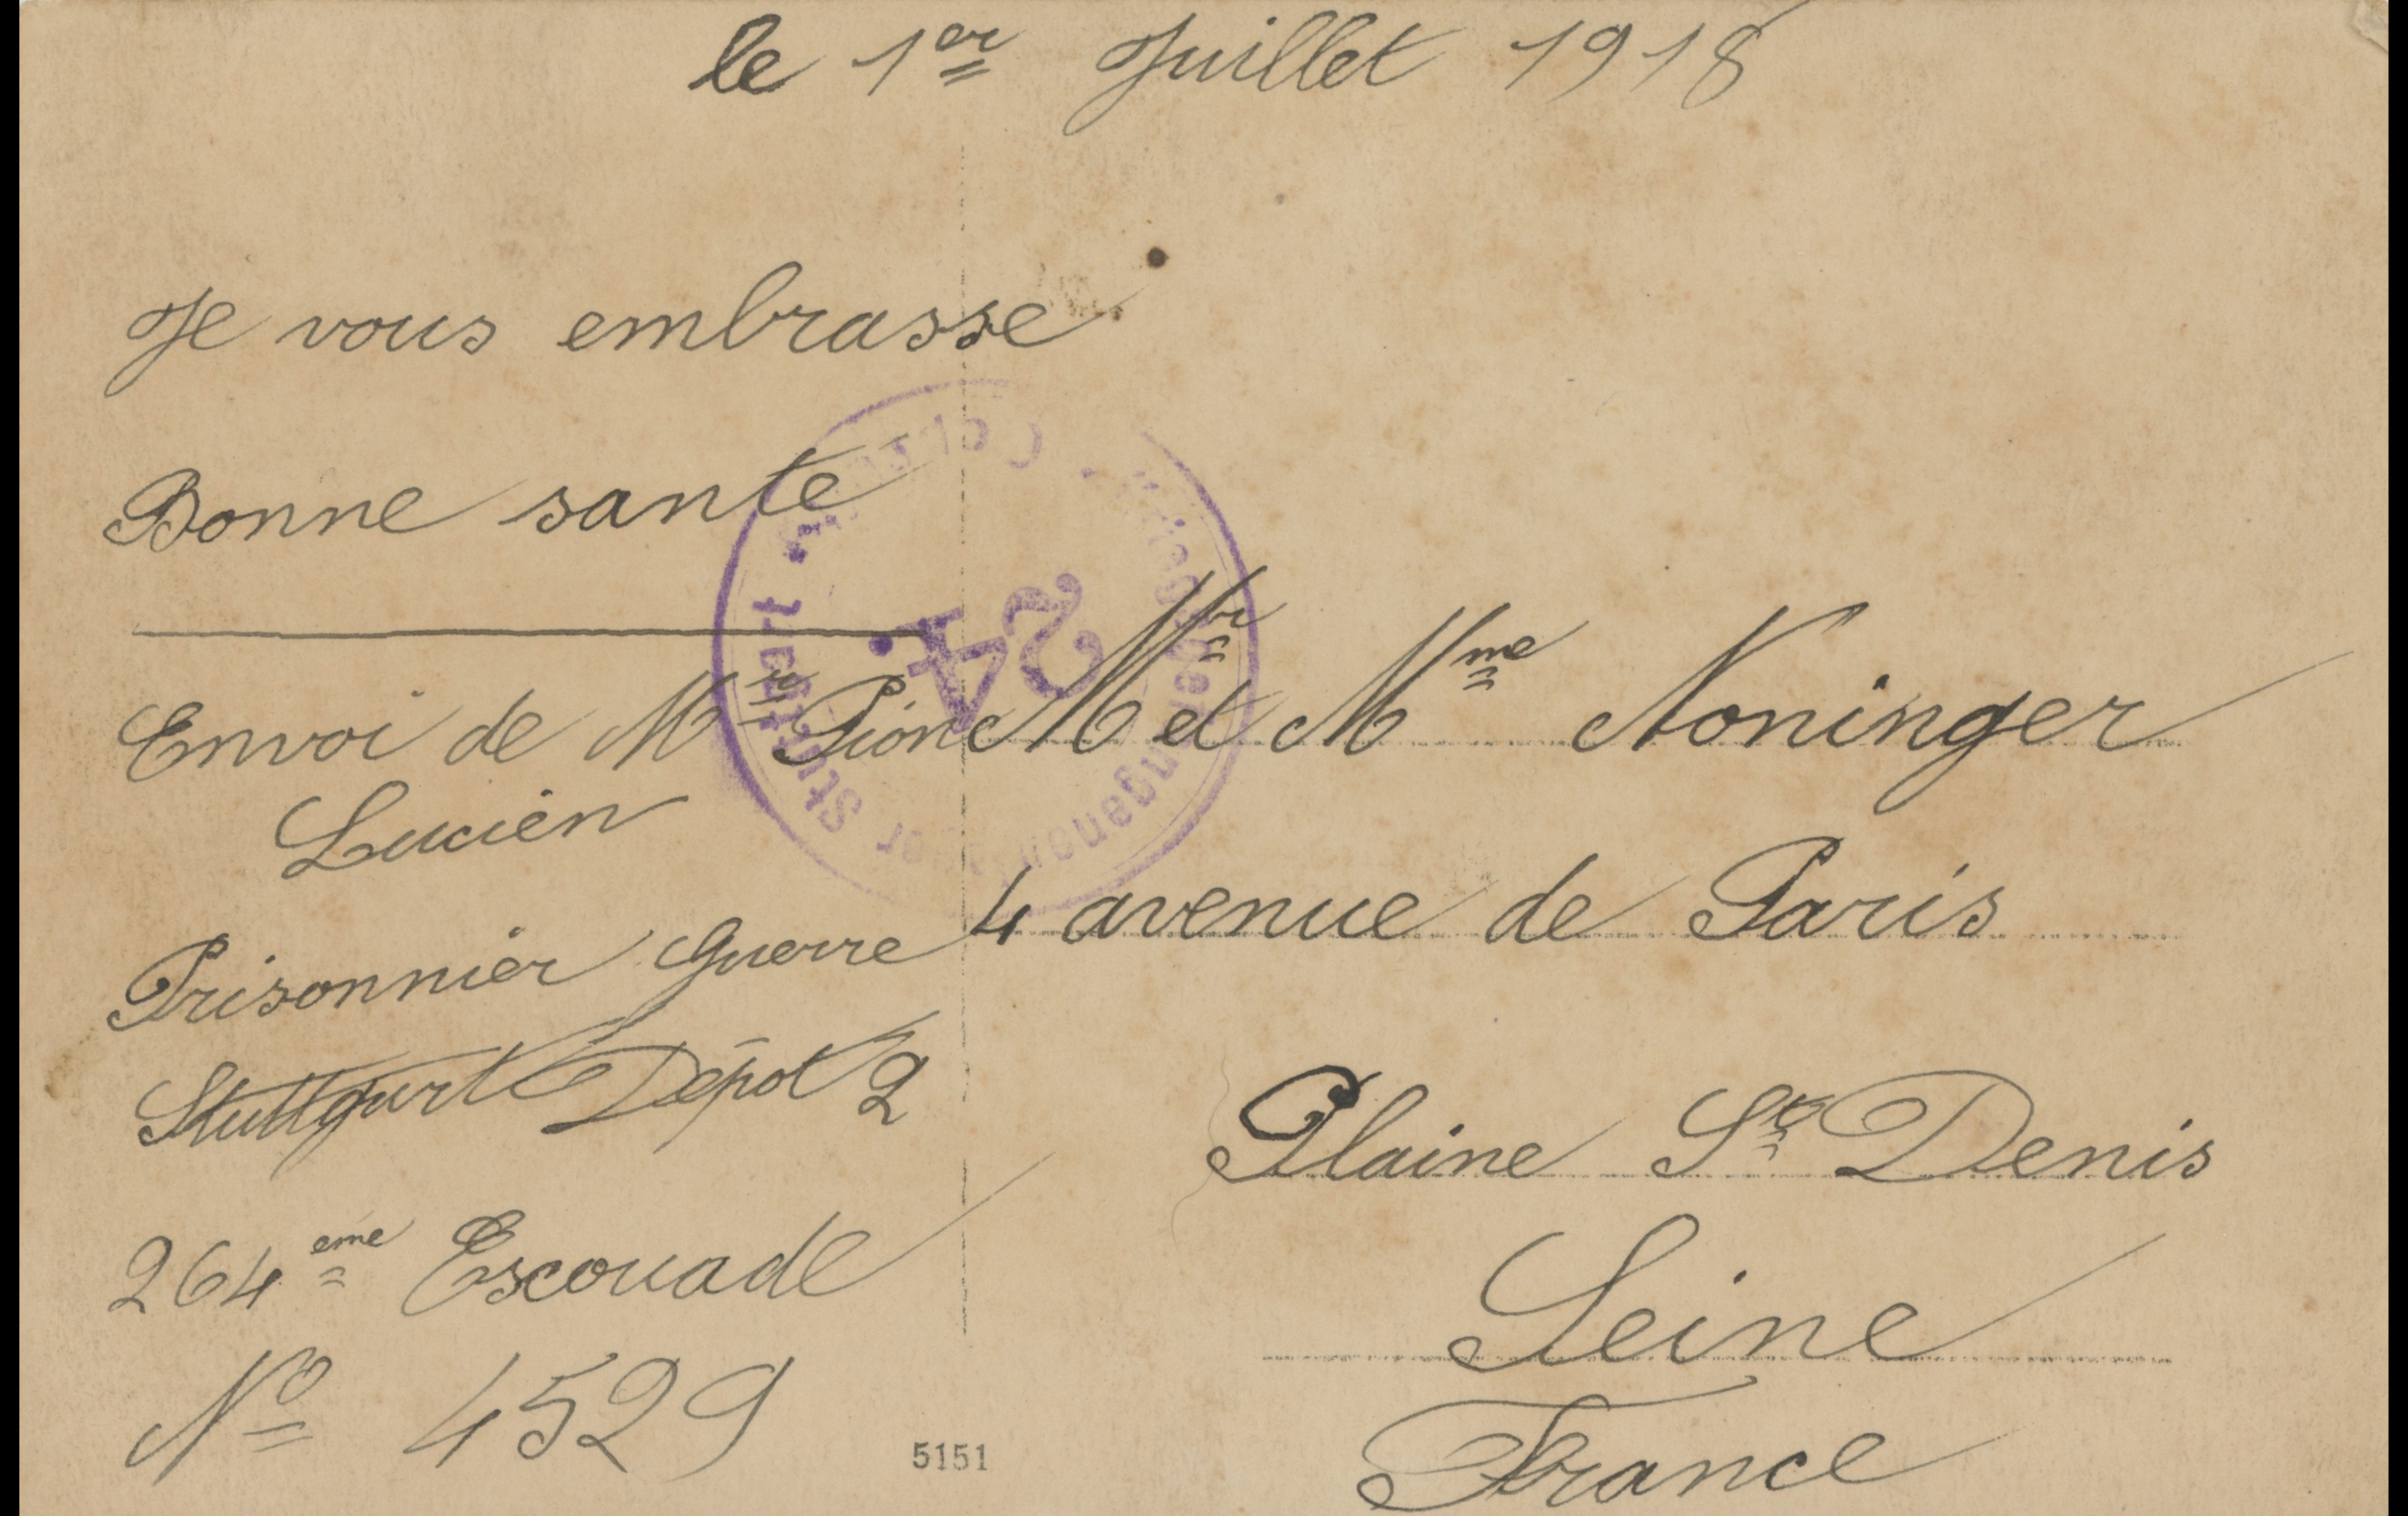 le 1er Juillet 1918
Je vous embrasse
Bonne santé
Envoi de Mr Pion
Lucien
Prisonnier Guerre
Stuttgart Dépot 2
264eme Escouade
No 4529
Mr et Mme Noninger
4 avenue de Paris
Plaine St Denis
Seine
France
24.
Stuttgart
5151